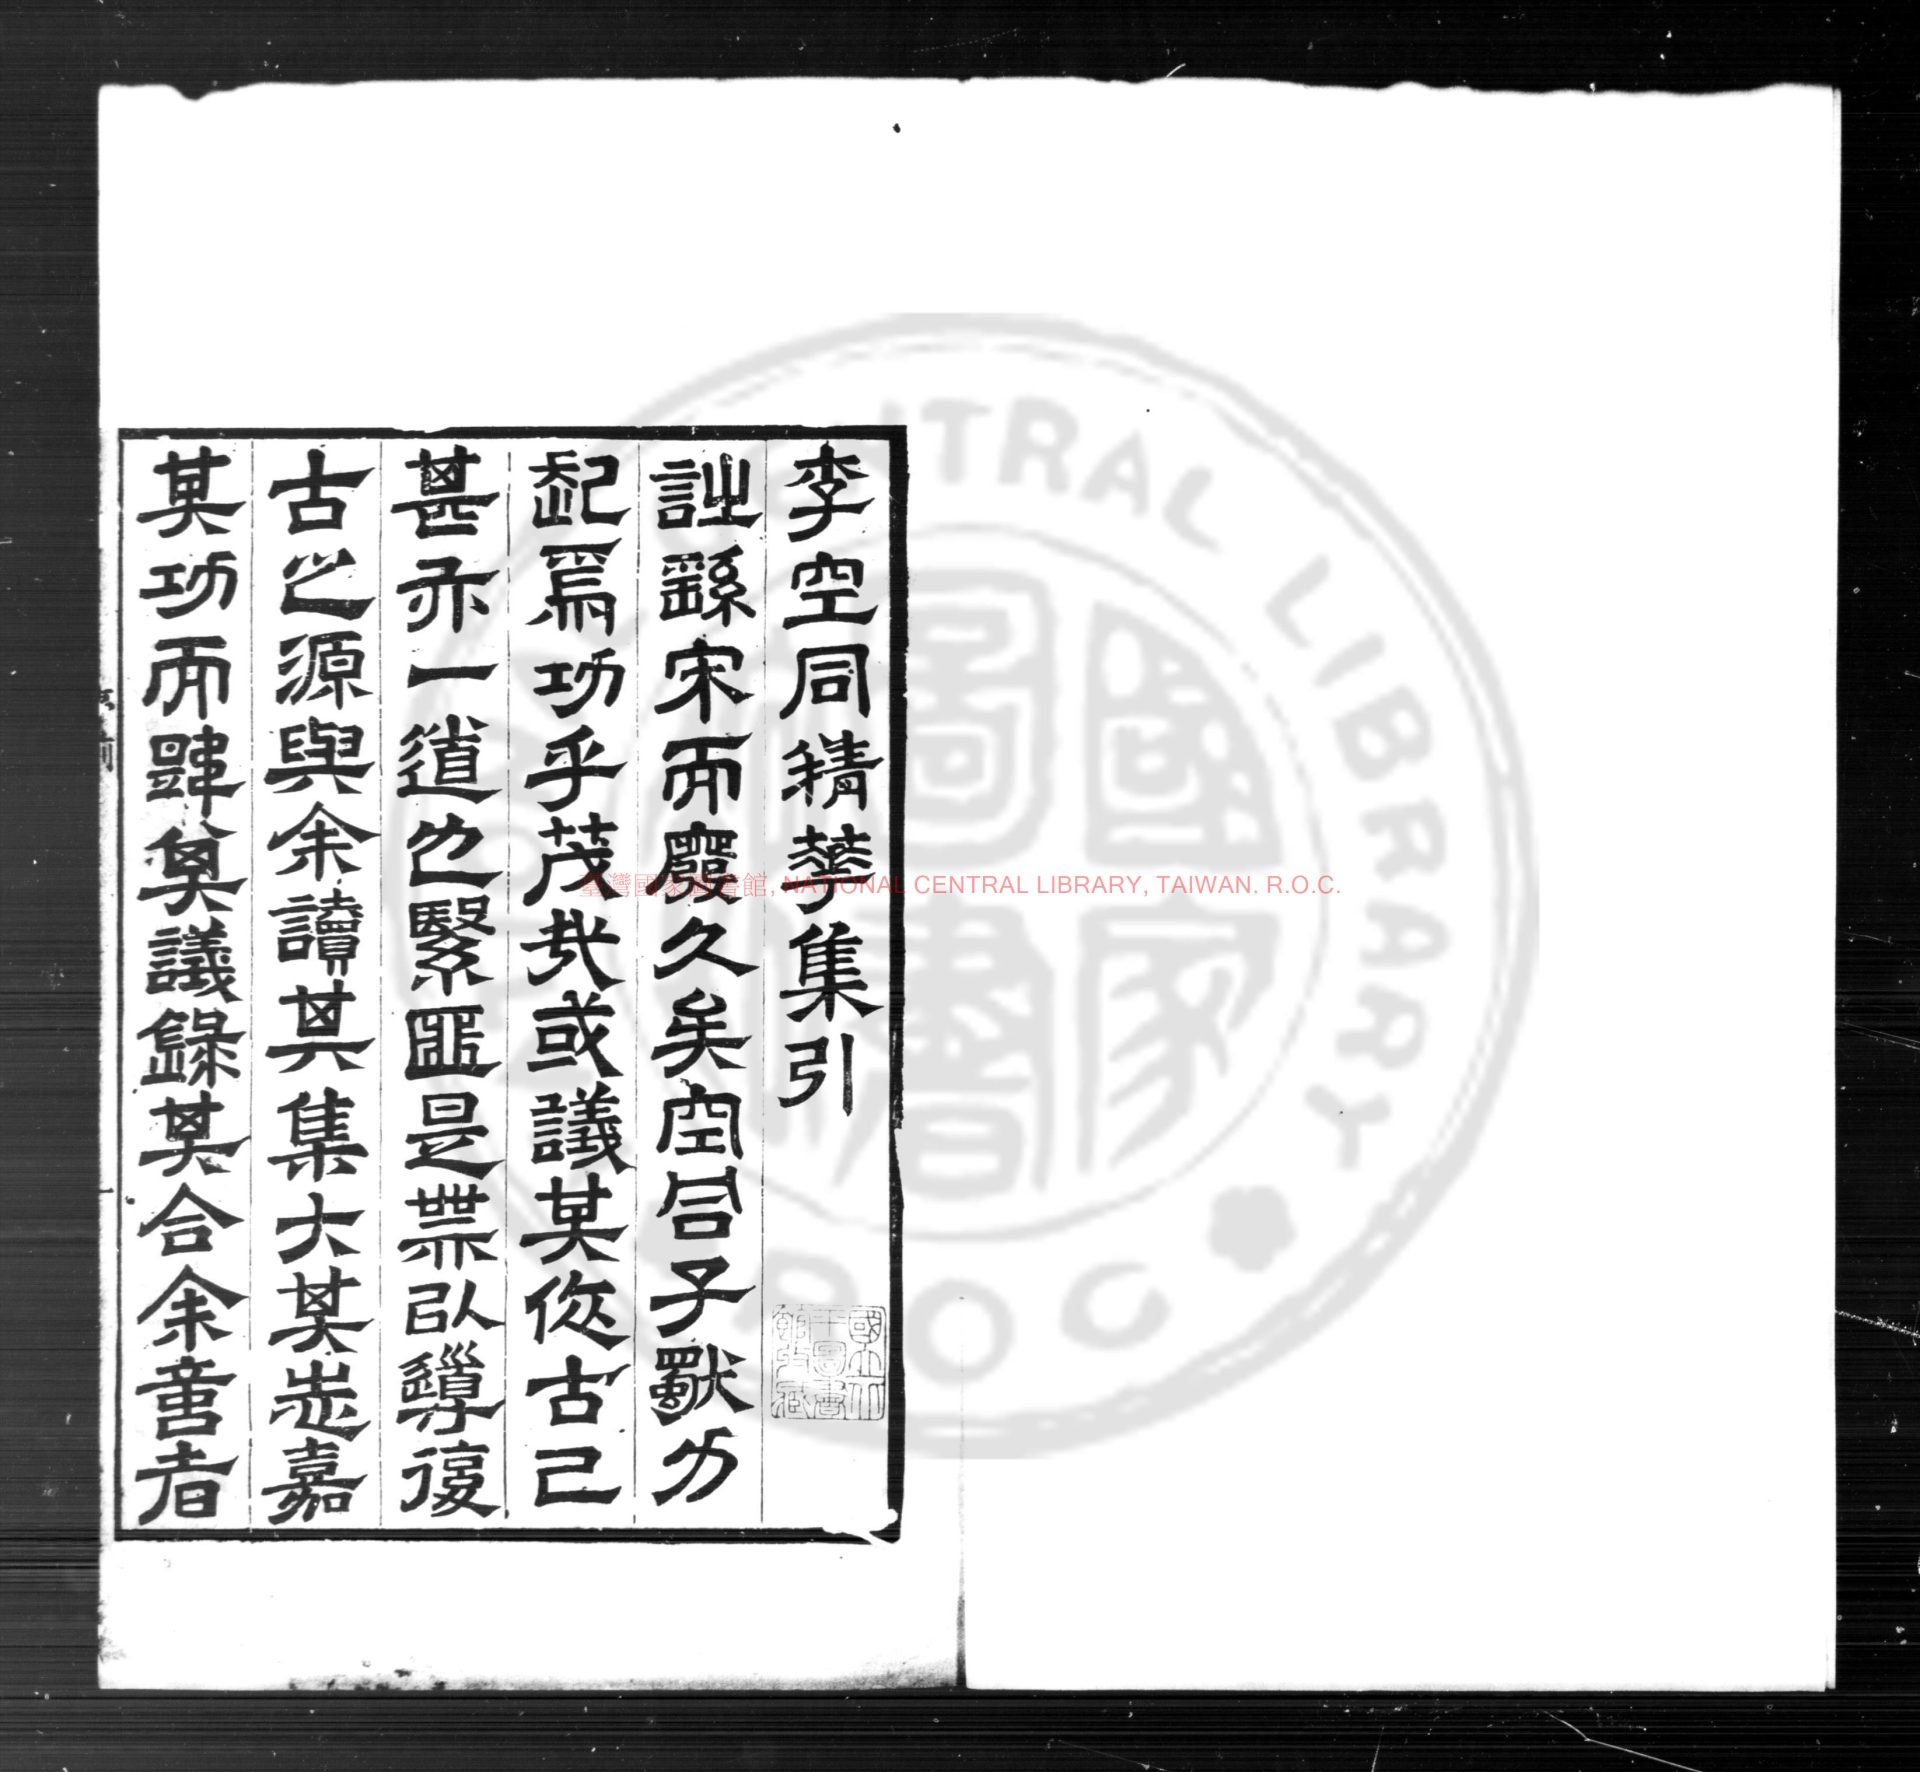 李空同精華集引
詩繇宋而廢久矣空同子獨力
起焉功乎茂哉或議其從古已
甚亦一道也緊匪是無以導復
古之源與余讀其集大其志嘉
其功而議錄其合余意者
國立北平圖書館收藏
臺灣國家圖書館, NATIONAL CENTRAL LIBRARY, TAIWAN. R.O.C.